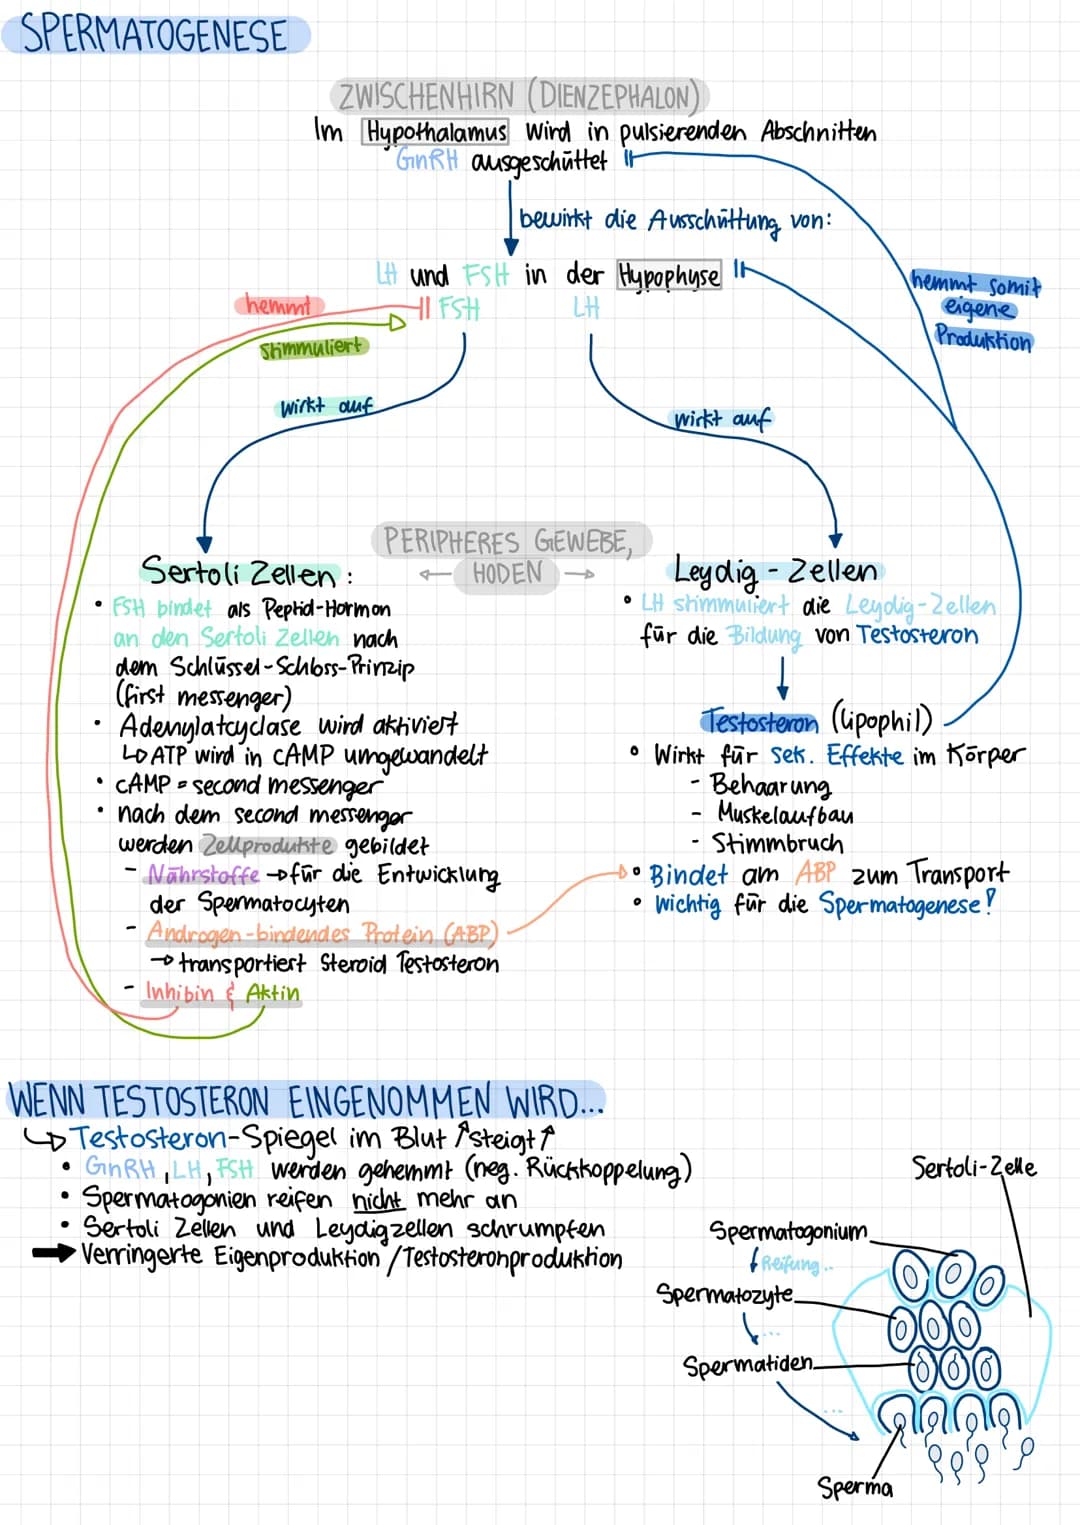 SPERMATOGENESE
ZWISCHENHIRN (DIENZEPHALON)
Im Hypothalamus Wird in pulsierenden Abschnitten
GnRH ausgeschüttet
bewirkt die Ausschüttung von:
LH und FSH in der Hypophyse
hemmt somit
eigene
Produktion
hemmt
FSH
LH
stimmuliert
wirkt auf
wirkt auf
PERIPHERES GEWEBE,
← HODEN →
Sertoli Zellen:
• FSH bindet als Peptid-Hormon
an den Sertoli Zellen nach
dem Schlüssel-Schloss-Prinzip
(first messenger)
• Adenylatcyclase wird aktiviert
↳ ATP wird in cAMP umgewandelt
• cAMP = second messenger
• nach dem second messenger
werden Zellprodukte gebildet
- Nährstoffe → für die Entwicklung
der Spermatocyten
- Androgen-bindendes Protein (ABP)
→ transportiert Steroid Testosteron
- Inhibin & Aktin
Leydig-Zellen
• LH stimmuliert die Leydig-Zellen
für die Bildung von Testosteron
Testosteron (lipophil)
• Wirkt für sek. Effekte im Körper
- Behaarung
- Muskelaufbau
- Stimmbruch
• Bindet am ABP zum Transport
• wichtig für die Spermatogenese!
WENN TESTOSTERON EINGENOMMEN WIRD...
↳ Testosteron-Spiegel im Blut ↑steigt↑
• GnRH, LH, FSH werden gehemmt (neg. Rückkoppelung)
• Spermatogonien reifen nicht mehr an
• Sertoli Zellen und Leydigzellen schrumpfen
→ Verringerte Eigenproduktion / Testosteronproduktion
Sertoli-Zelle
Spermatogonium
↓ Reifung..
Spermatozyte
...
Spermatiden
...
Sperma